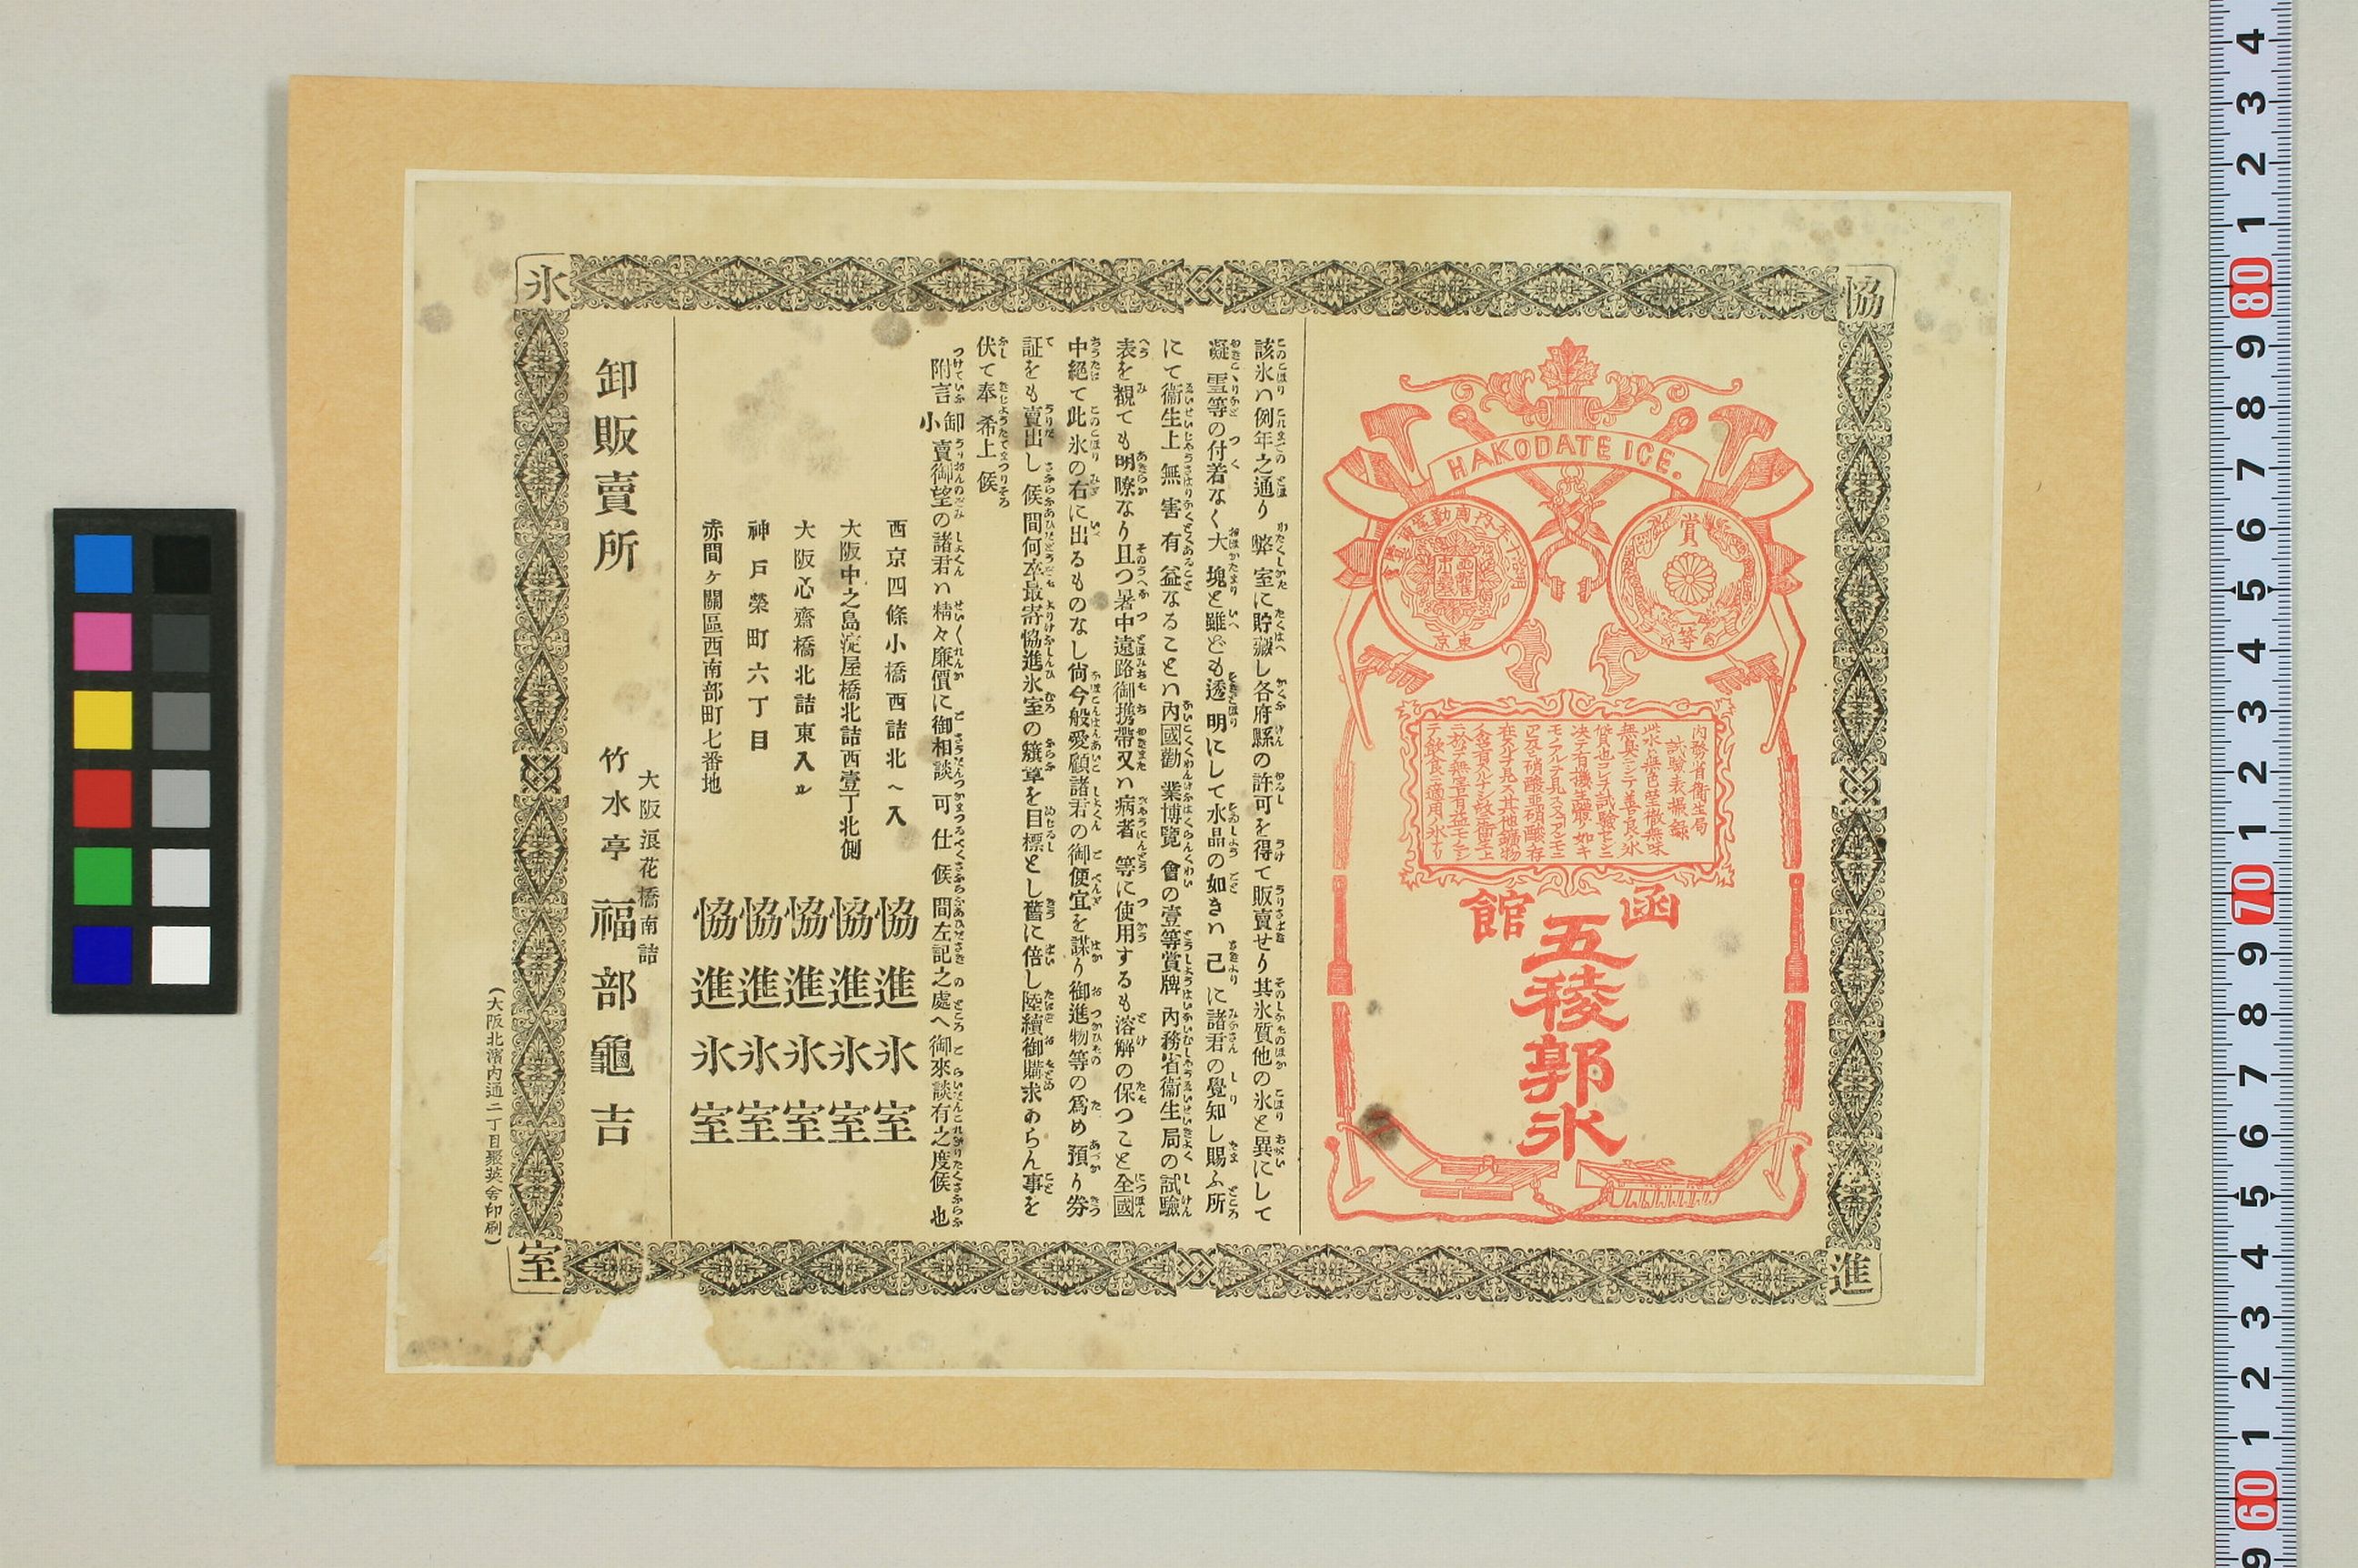 協
進
氷
室
HAKODATE ICE.
賞
東京
内務省衛生局
試験表撮録
此氷ハ無色堅徹無味
無臭ニシテ善良ノ氷
函館
五稜郭氷
該氷ハ例年之通り弊室に貯藏し各府縣の許可を得て販賣せり其氷質他の氷と異にして
凝雪等の付着なく大塊と雖ども透明にして水晶の如きハ己に諸君の覺知し賜ふ所
にて衞生上無害有益なることハ内國勸業博覽會の壹等賞牌内務省衞生局の試驗
表を觀ても明瞭なり且つ暑中遠路御携帶又ハ病者等に使用するも溶解の保つこと全國
中絕て此氷の右に出るものなし尙今般愛顧諸君の御便宜を謀り御進物等の爲め預り劵
証をも賣出し候間何卒最寄協進氷室の籏章を目標とし舊に倍し陸續御購求あらん事を
伏て奉希上候
附言卸小賣御望の諸君ハ精々廉價に御相談可仕候間左記之處へ御來談有之度候也
西京四條小橋西詰北ヘ入 協進氷室
大阪中之島淀屋橋北詰西壹丁北側 協進氷室
大阪心齋橋北詰東入ル 協進氷室
神戸榮町六丁目 協進氷室
赤間ヶ關區西南部町七番地 協進氷室
卸販賣所
大阪浪花橋南詰
竹水亭 福部龜吉
(大阪北濱内通二丁目聚英舍印刷)